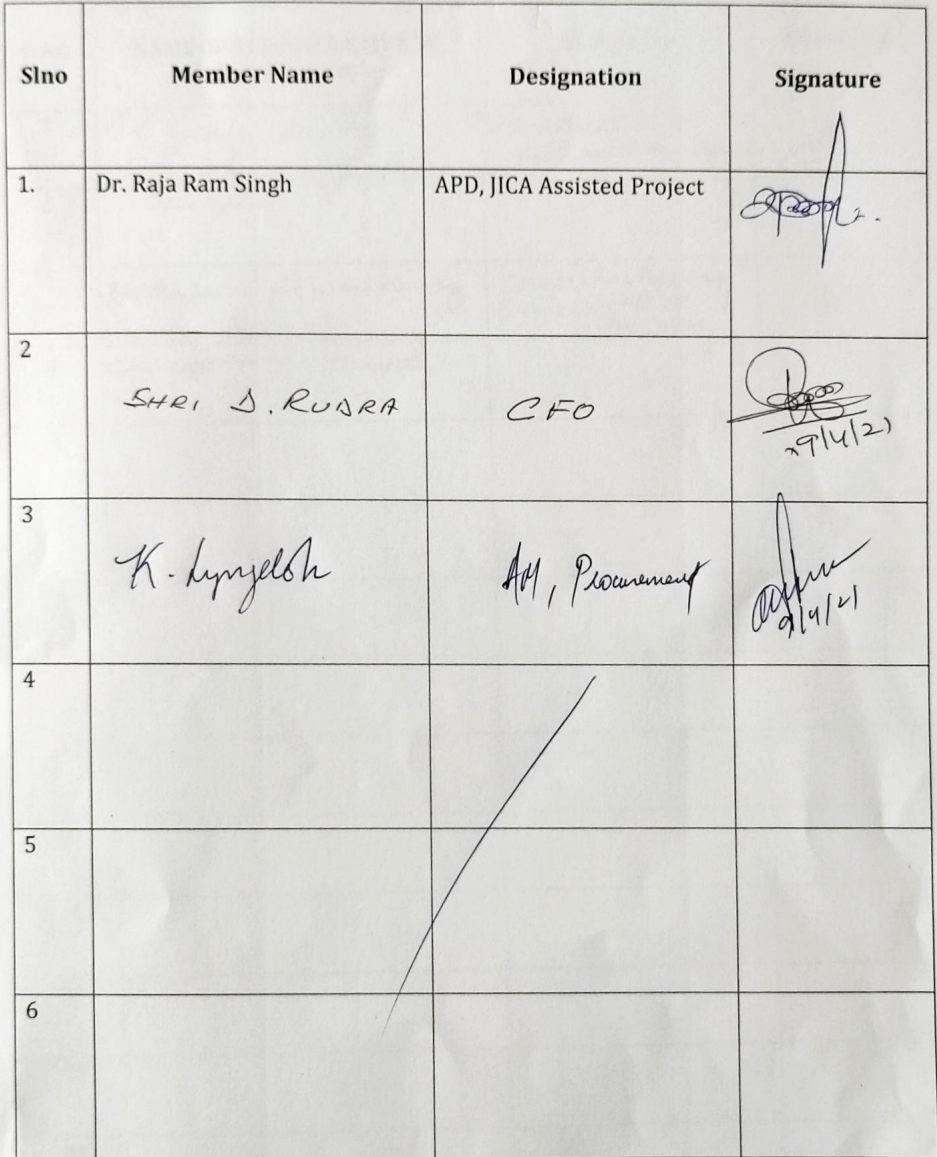 Slno Member Name Designation Signature
1. Dr. Raja Ram Singh APD, JICA Assisted Project
2
SHRI D. RUDRA CFO
9/4/21
3
K. Lyngdoh AM, Procurement
9/4/21
4
5
6